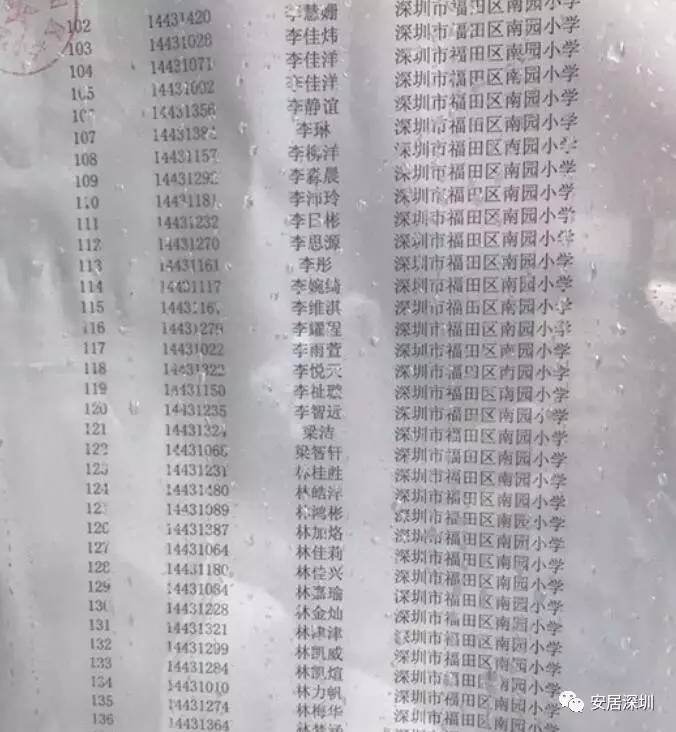 102 14431420 李慧姗 深圳市福田区南园小学
103 14431028 李佳炜 深圳市福田区南园小学
104 14431071 李佳洋 深圳市福田区南园小学
105 14431002 李佳洋 深圳市福田区南园小学
106 14431356 李静谊 深圳市福田区南园小学
107 14431382 李琳 深圳市福田区南园小学
108 14431157 李柳洋 深圳市福田区南园小学
109 14431292 李淼晨 深圳市福田区南园小学
110 14431181 李沛玲 深圳市福田区南园小学
111 14431232 李日彬 深圳市福田区南园小学
112 14431270 李思源 深圳市福田区南园小学
113 14431161 李彤 深圳市福田区南园小学
114 14431117 李婉绮 深圳市福田区南园小学
115 李维淇 深圳市福田区南园小学
116 14431279 深圳市福田区南园小学
117 14431022 李雨萱 深圳市福田区南园小学
118 14431322 李悦天 深圳市福田区南园小学
119 14431150 李祉璇 深圳市福田区南园小学
120 14431235 李智远 深圳市福田区南园小学
121 14431324 梁洁 深圳市福田区南园小学
122 14431066 梁智轩 深圳市福田区南园小学
123 14431231 林桂胜 深圳市福田区南园小学
124 14431480 林皓洋 深圳市福田区南园小学
125 14431089 林鸿彬 深圳市福田区南园小学
126 14431387 林加烙 深圳市福田区南园小学
127 14431064 林佳莉 深圳市福田区南园小学
128 14431180 林佳兴 深圳市福田区南园小学
129 14431084 林嘉瑜 深圳市福田区南园小学
130 14431228 林金灿 深圳市福田区南园小学
131 14431321 林津津 深圳市福田区南园小学
132 14431299 林凯威 深圳市福田区南园小学
133 14431284 林凯煊 深圳市福田区南园小学
134 14431010 林力帆 深圳市福田区南园小学
135 14431274 林梅华 深圳市福田区南园小学
136 14431364 深圳市福田区南园小学
安居深圳